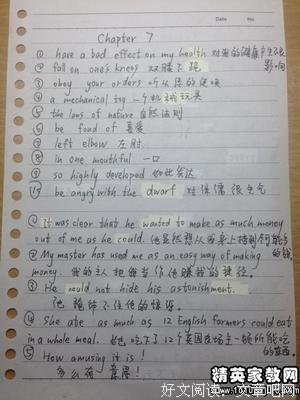 Date No.
Chapter 7
① have a bad effect on my health 对我的健康产生不良
影响
② fall on one's knees 双膝下跪
③ obey your orders 听从你的
④ a mechanical toy 一个机械玩具
⑤ the laws of nature 自然法则
⑥ be fond of 喜爱
⑦ left elbow 左肘
⑧ in one mouthful 一口
⑨ so highly developed 如此发达
⑩ be angry with the dwarf 对侏儒很生气
① It was clear that he wanted to make as much money
out of me as he could. 他显然想从我身上
的钱
② My master has used me as an easy way of making
money. 我的主人把我当作他赚钱的途径。
③ He could not hide his astonishment.
他掩饰不住他的惊讶。
④ She ate as much as 12 English farmers could eat
in a whole meal. 她吃下了12个英国农场主一顿所能吃
的东西。
⑤ How amusing it is!
多么有
好文阅读:
精英家教网